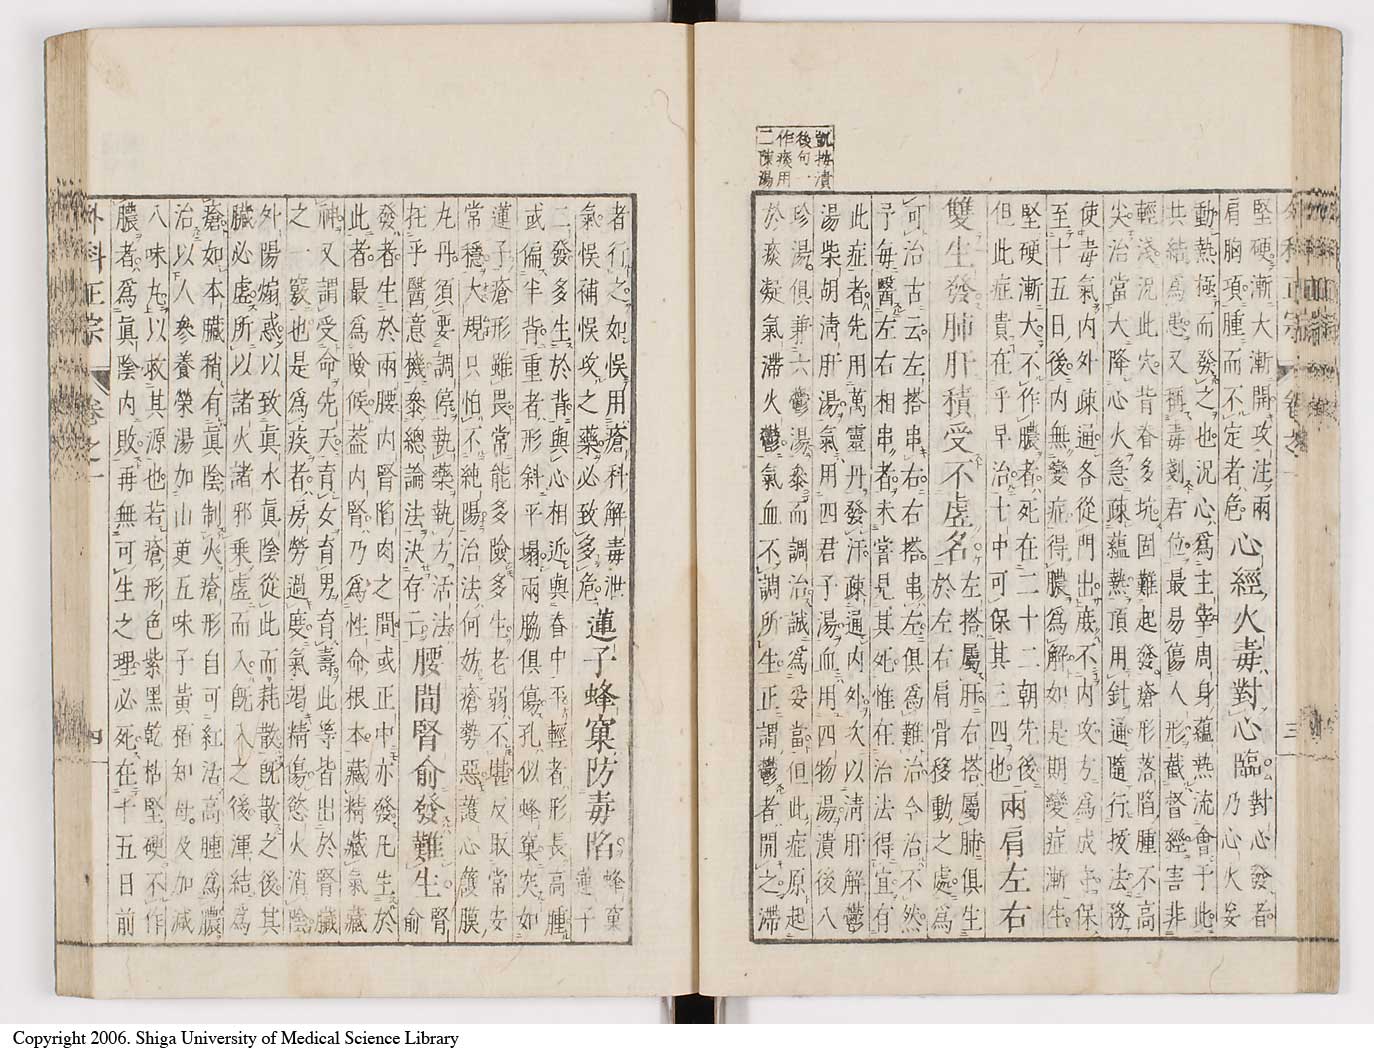 凱按潰
後句一
作痰用
二陳湯
堅硬漸大漸開攻注兩
肩胸項腫而不定者危
心經火毒對心臨
對心發者
乃心火妄
動熱極而發之也況心為主宰周身蘊熱流會于此
共結為患又稱毒剋君位最易傷人形截督經害非
輕淺況此穴背脊多坑固難起發瘡形落陷腫不高
尖治當大降心火急疎蘊熱頂用針通隨行拔法務
使毒氣內外疎通各從門出庶不內攻方為成守保
至十五日後內無變症得膿為解如是期變症漸生
堅硬漸大不作膿者死在二十二朝先後
但此症貴在乎早治十中可保其三四也
兩肩左右
雙生發肺肝積受不虛名
左搭屬肝右搭屬肺俱生
於左右肩骨移動之處為
可治古云左搭串右右搭串左俱為難治今治不然
予每醫左右相串者未嘗見其死惟在治法得宜有
此症者先用萬靈丹發汗疎通內外次以清肝解鬱
湯柴胡清肝湯氣用四君子湯血用四物湯潰後八
珍湯俱兼六鬱湯叅而調治誠為妥當但此症原起
於痰凝氣滯火鬱氣血不調所生正謂鬱者開之滯
三
者行之如悞用瘡科解毒泄
氣悞補悞攻之藥必致多危
蓮子蜂窠防毒陷
蜂窠
蓮子
二發多生於背與心相近與脊中平輕者形長高腫
或偏半背重者形斜平塌兩脇俱傷孔似蜂窠突如
蓮子瘡形雖畏常能多險多生老弱不堪反取常安
常穩大規只怕不純陽治法何妨瘡勢惡護心護膜
九丹須要調停執藥執方活法
在乎醫意機叅總論法決存云
腰間腎俞發難生
腎俞
發者生於兩腰內腎陷肉之間或正中亦發凡生於
此者最為險候葢內腎乃為性命根本藏精藏氣藏
神又謂受命先天育女育男育壽此等皆出於腎臟
之一竅也是為疾者房勞過度氣竭精傷慾火消陰
外陽煽惑以致眞水眞陰從此而耗散既散之後其
臟必虛所以諸火諸邪乘虛而入既入之後渾結為
瘡如本臟稍有眞陰制火瘡形自可紅活高腫為膿
治以人參養榮湯加山萸五味子黃栢知母及加減
八味丸以救其源也若瘡形色紫黑乾枯堅硬不作
膿者為眞陰內敗再無可生之理必死在十五日前
外科正宗 卷之一 四
Copyright 2006. Shiga University of Medical Science Library